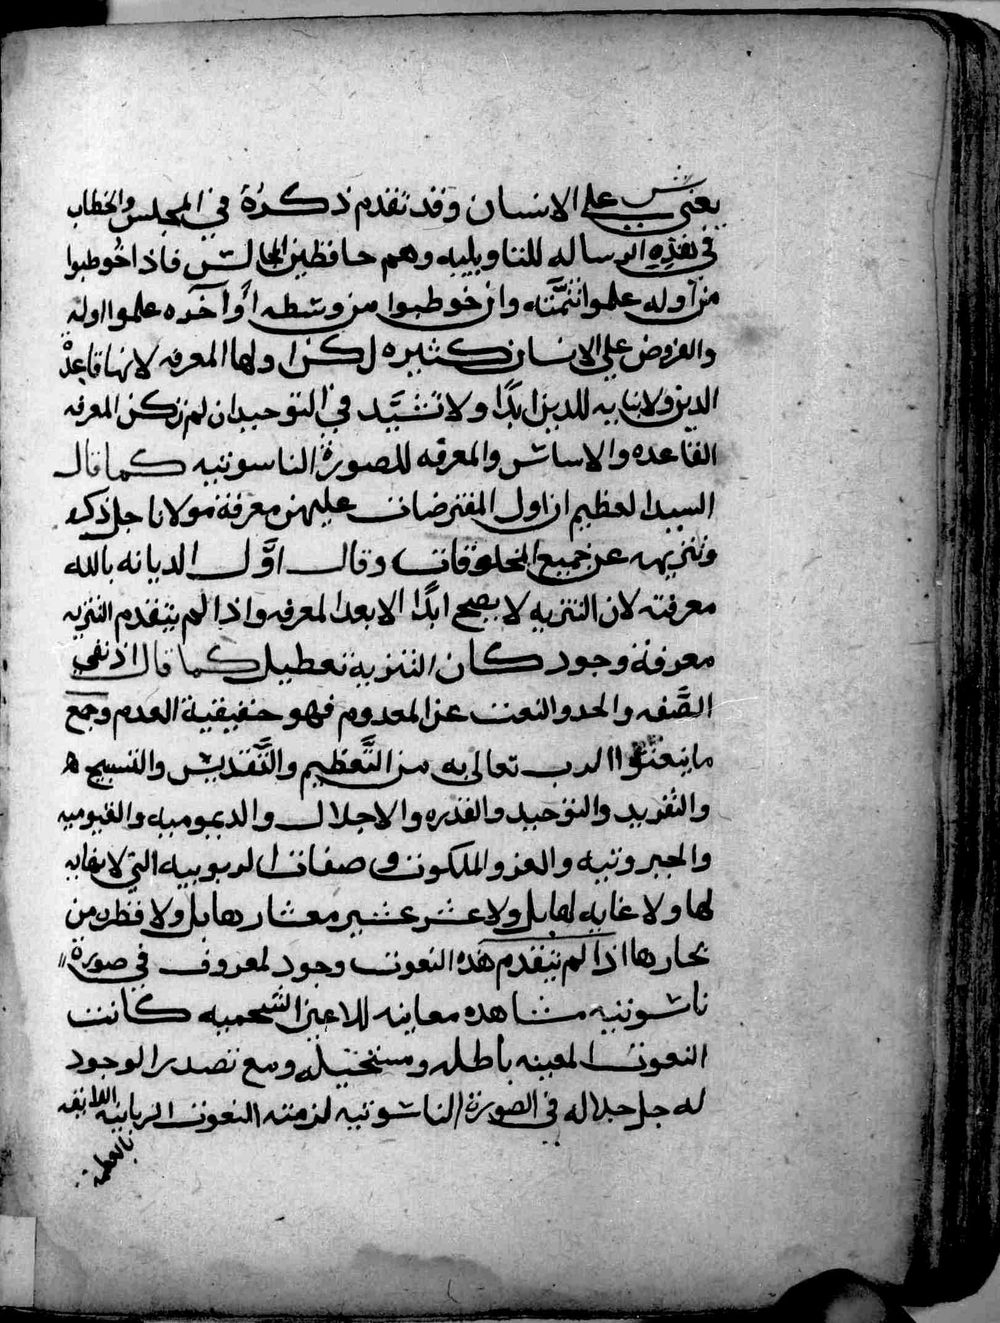 يغني علي الانسان وقد تقدم ذكره في المجلس والخطاب
في هذه الرساله للتناويليه وهم حافظين المجالس فاذا خوطبوا
من اوله علموا تتمته وان خوطبوا من وسطه او آخره علموا اوله
والفروض علي الانسان كثيره لكن اولها المعرفه لانها قاعدة
الدين ولا بنايه للدين ابدًا ولا تشيَّد في التوحيد ان لم تكن المعرفه
القاعده والاساس والمعرفه للصورة الناسوتيه كما قال
السيد العظيم ان اول المفترضات عليهن معرفة مولانا جل ذكره
وتنزيهه عن جميع المخلوقات وقال اوَّل الديانه بالله
معرفته لان التنزيه لا يصح ابدًا الا بعد المعرفه واذا لم يتقدم التنزيه
معرفة وجود كان التنزيه تعطيل كما قال اذ نفي
الصَّفه والحد والنعت عن المعدوم فهو حقيقية العدم وجمع
ما ينعتوا الرب تعالى به من التَّعظيم والتَّقديس والتسبيح
والتفريد والتوحيد والقدره والاجلال والديموميه والقيوميه
والجبروتيه والعز والملكوت و صفات الربوبيه التي لا نهايه
لها ولا غايه لهابل ولا عشر عشير معشارها بل ولا قطره من
بحارها اذا لم يتقدم هذه النعوت وجود لمعروف في صورة
ناسوتيه مشاهده معاينه للاعين الشحميه كانت
النعوت المعينه باطله ومستحيله ومع تصدر الوجود
له جل جلاله في الصورة الناسوتيه لزمته النعوت الربانيه اللايقه
بالعظمه